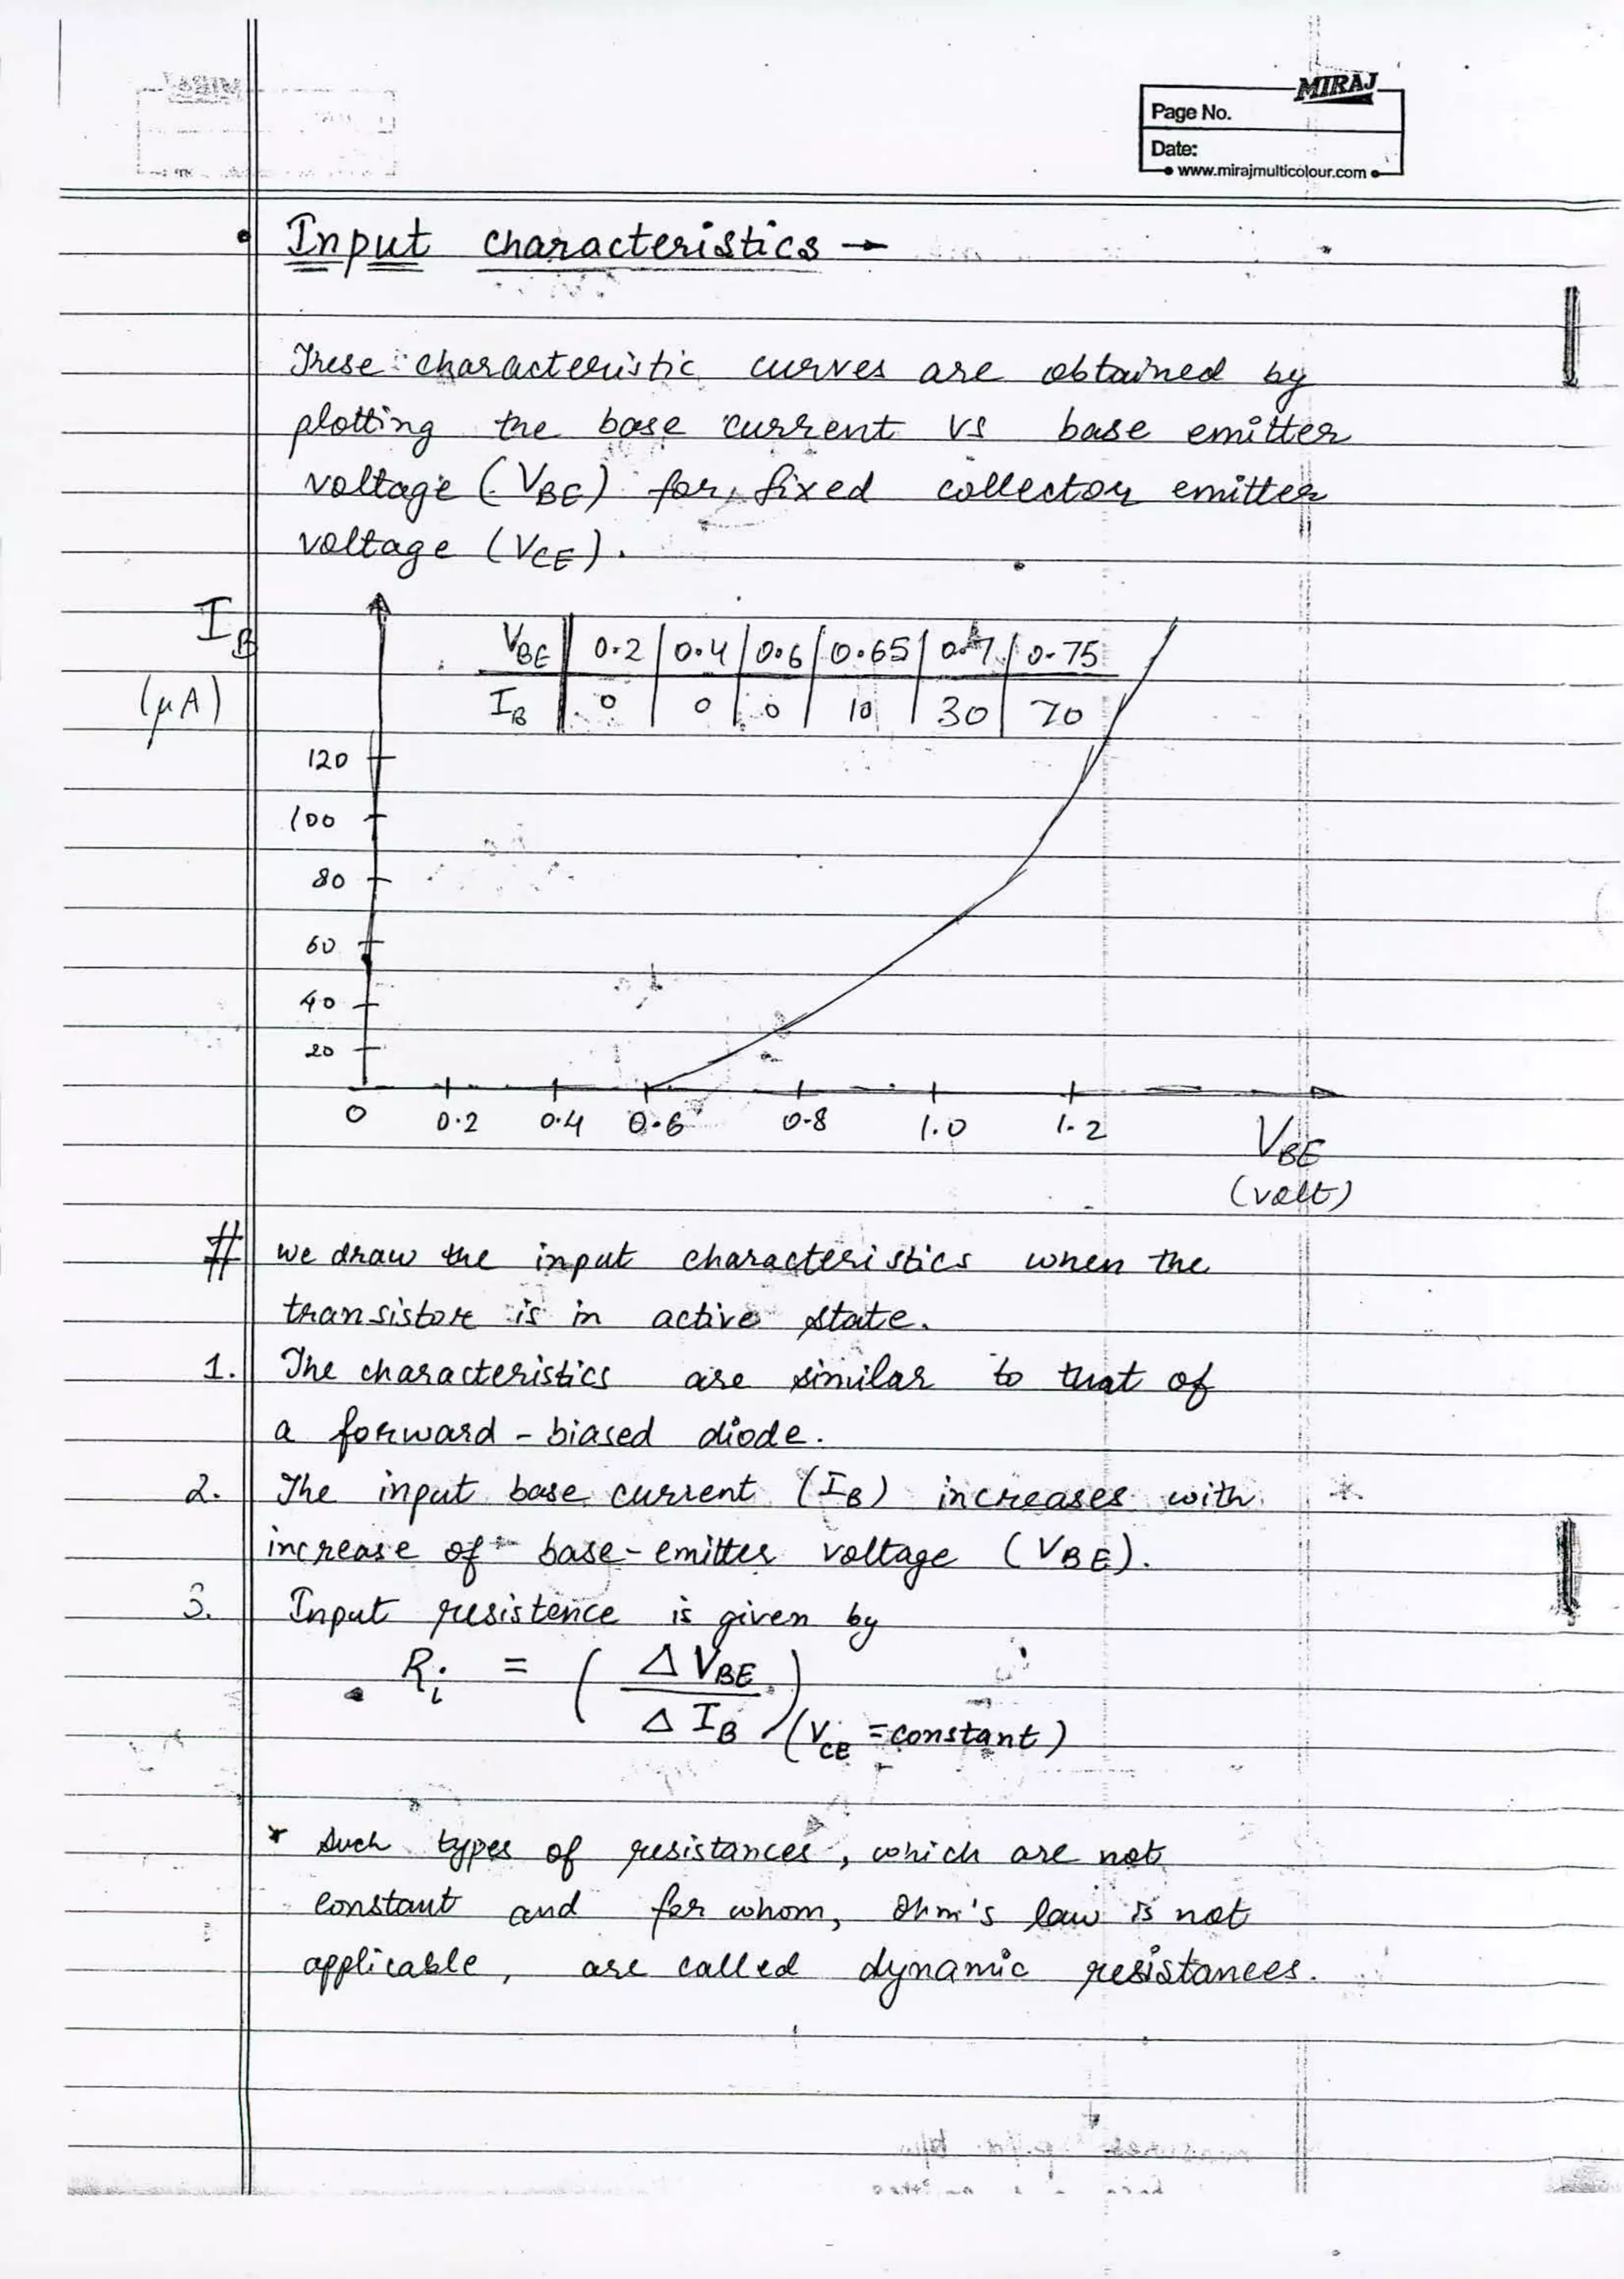 MIRAJ
Page No.
Date:
www.mirajmulticolour.com
• Input characteristics →
These characteristic curves are obtained by
plotting the base current vs base emitter
voltage (VBE) for fixed collector emitter
voltage (VCE).
IB
(μA)
VBE 0.2 0.4 0.6 0.65 0.7 0.75
IB 0 0 0 10 30 70
120
100
80
60
40
20
0 0.2 0.4 0.6 0.8 1.0 1.2
VBE
(volt)
# we draw the input characteristics when the
transistor is in active state.
1. The characteristics are similar to that of
a forward-biased diode.
2. The input base current (IB) increases with
increase of base-emitter voltage (VBE).
3. Input resistence is given by
Ri = (ΔVBE / ΔIB) (VCE = constant)
* Such types of resistances, which are not
constant and for whom, Ohm's law is not
applicable, are called dynamic resistances.